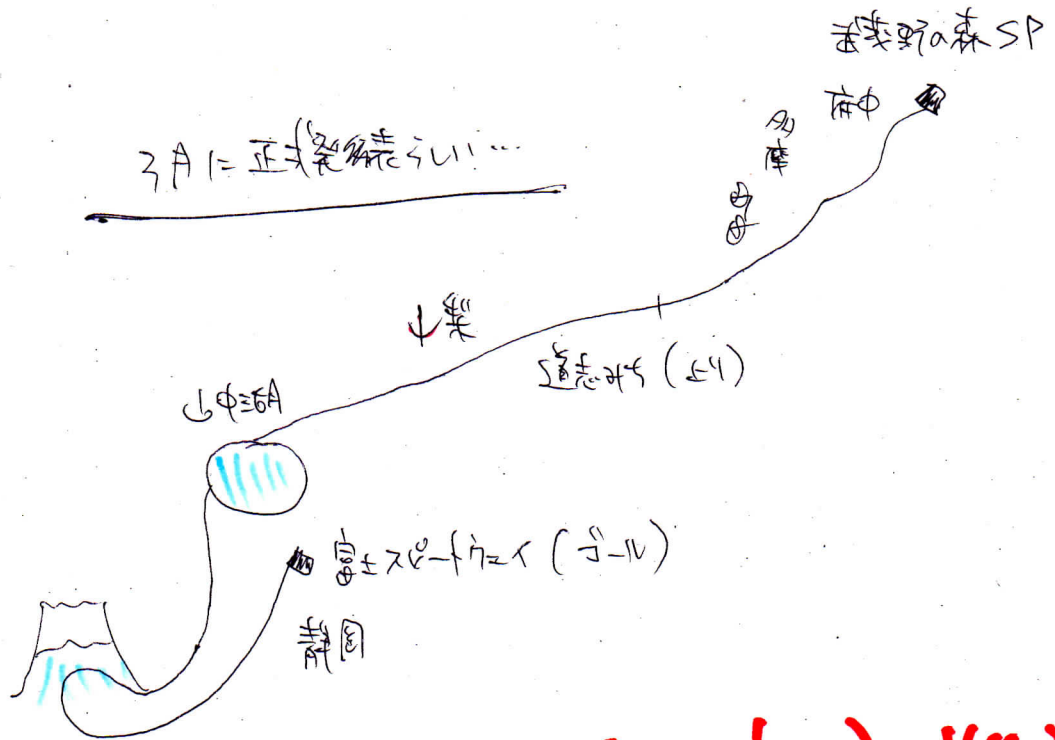 武蔵野の森SP
府中
多摩
3月に正式発表らしい…
山梨
道志みち(上り)
山中湖
富士スピードウェイ(ゴール)
静岡